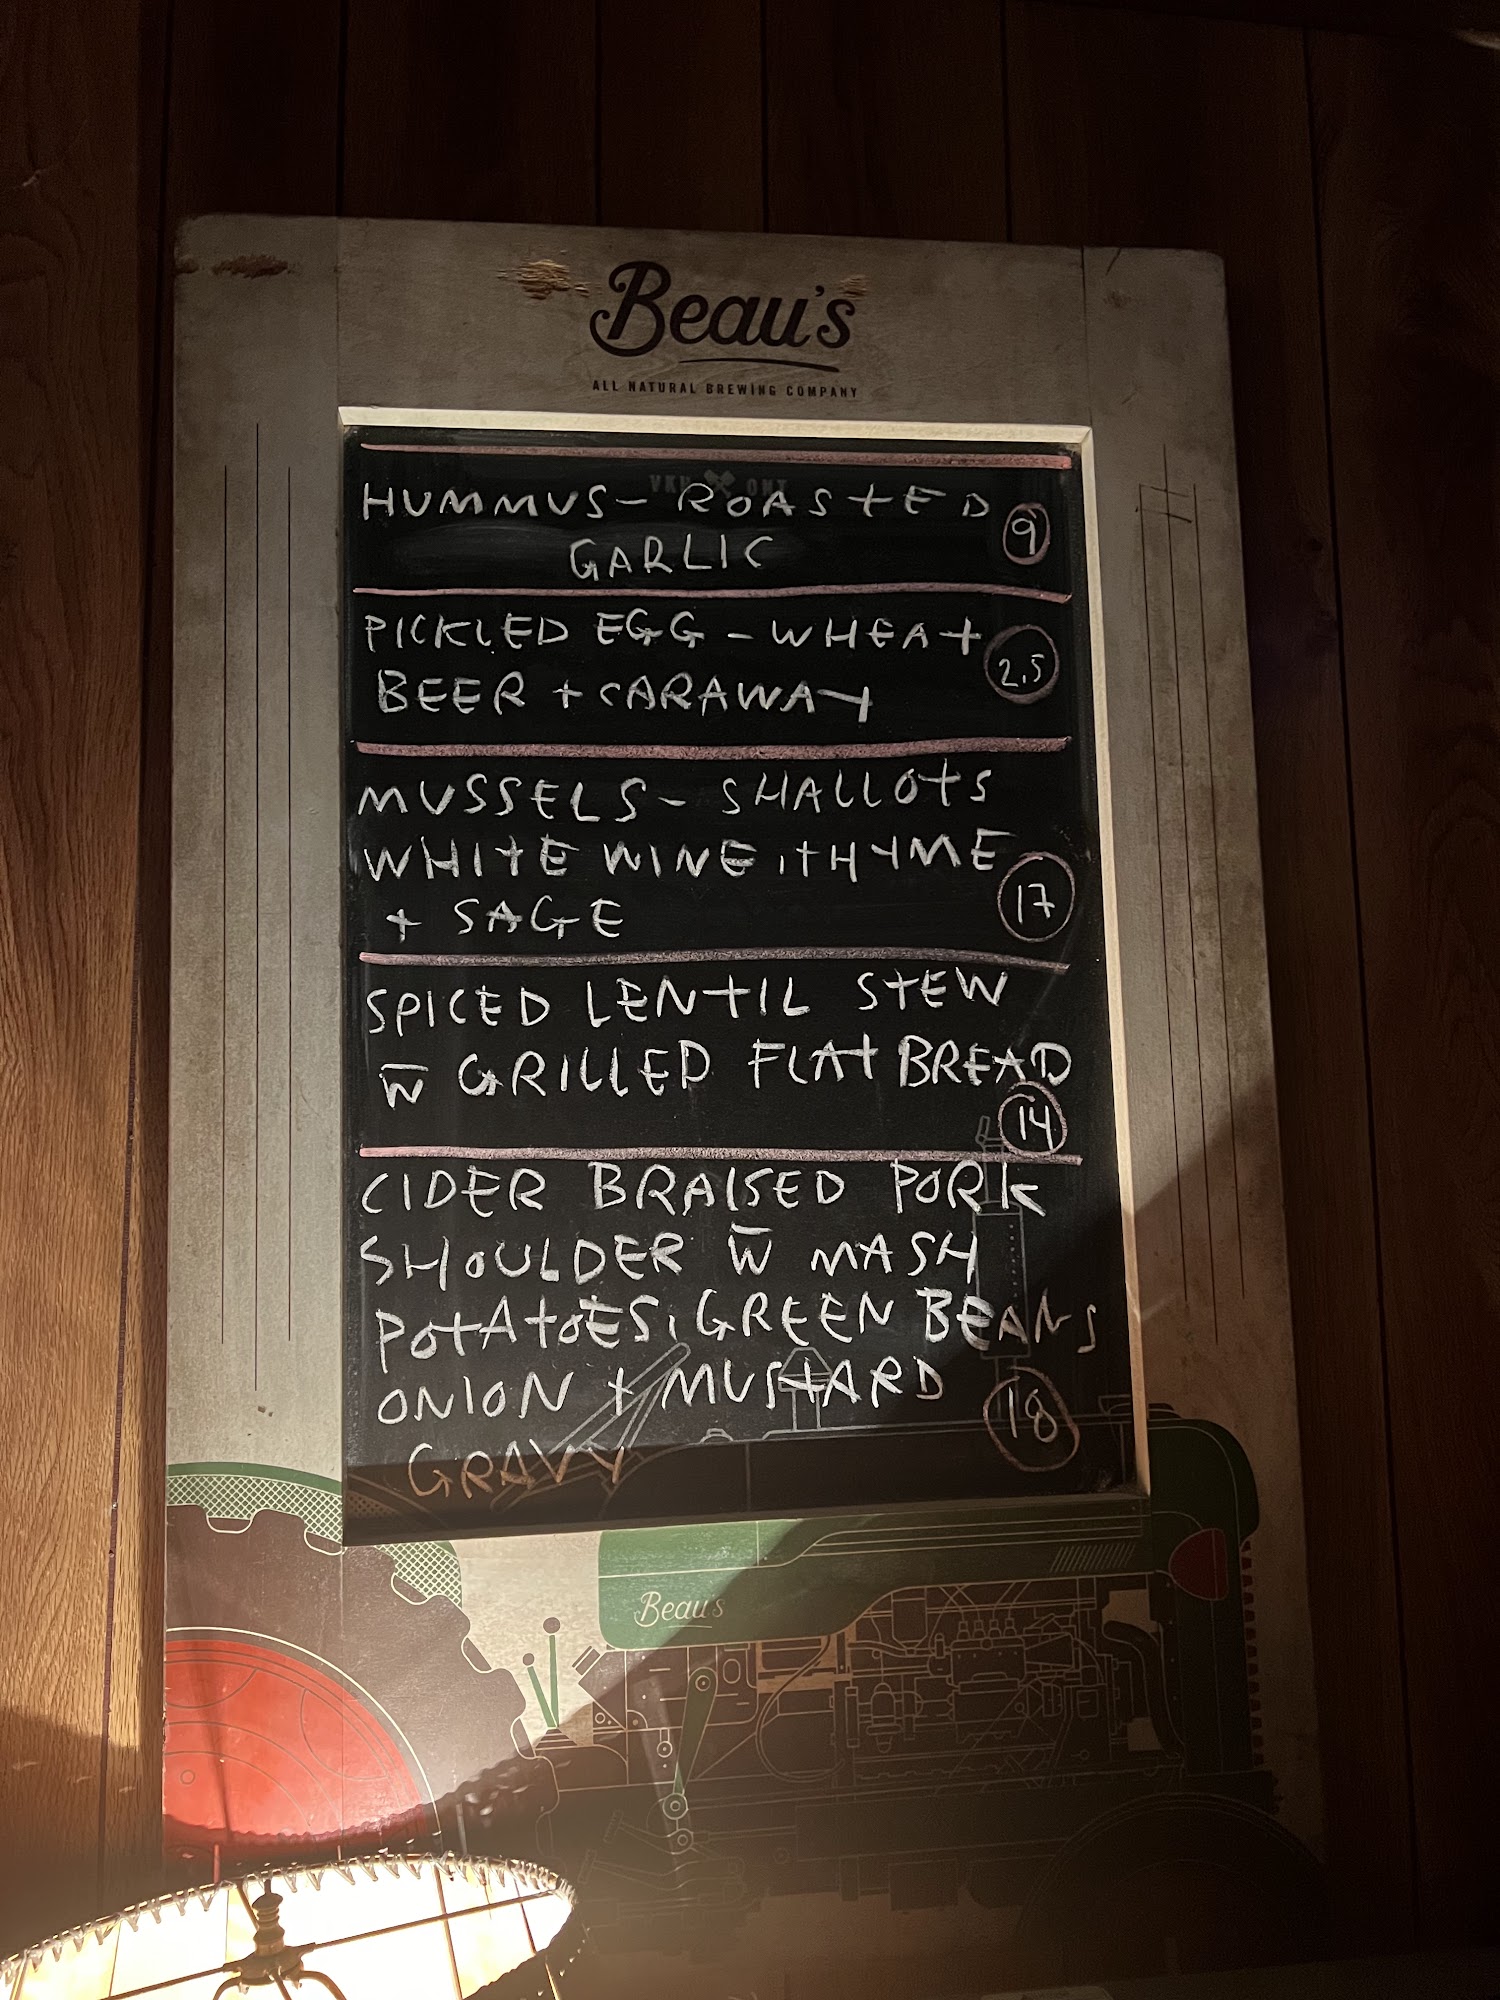 Beau's
ALL NATURAL BREWING COMPANY
VKH ONT
HUMMUS - ROASTED
GARLIC
9
PICKLED EGG - WHEAT
BEER + CARAWAY
2.5
MUSSELS - SHALLOTS
WHITE WINE, THYME
+ SAGE
17
SPICED LENTIL STEW
w̅ GRILLED FLAT BREAD
14
CIDER BRAISED PORK
SHOULDER w̅ MASH
POTATOES, GREEN BEANS
ONION + MUSTARD
GRAVY
18
Beau's